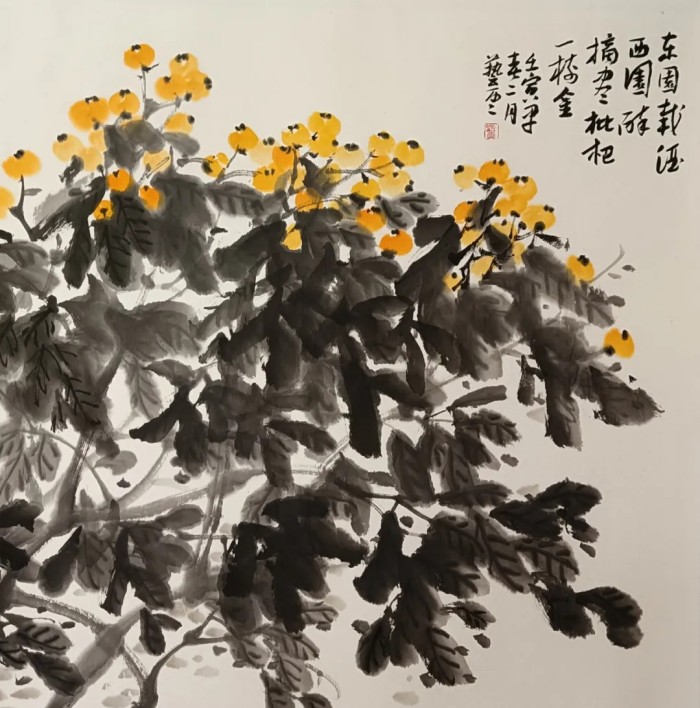 东園载酒
西園醉
摘尽枇杷
一树金
壬寅
春二月